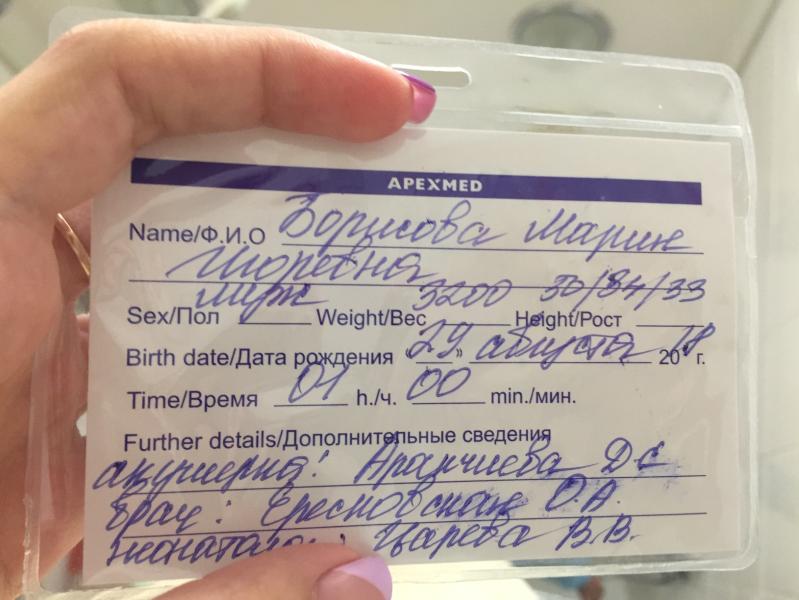 APEXMED
Name/Ф.И.О Борисова Марине
Игоревна
Sex/Пол муж Weight/Вес 3200 Height/Рост 50/34/33
Birth date/Дата рождения «29» августа 2018 г.
Time/Время 01 h./ч. 00 min./мин.
Further details/Дополнительные сведения
акушерка: Аракчиева Д С
врач: Ересновская О.А.
неонатолог: Царева В.В.